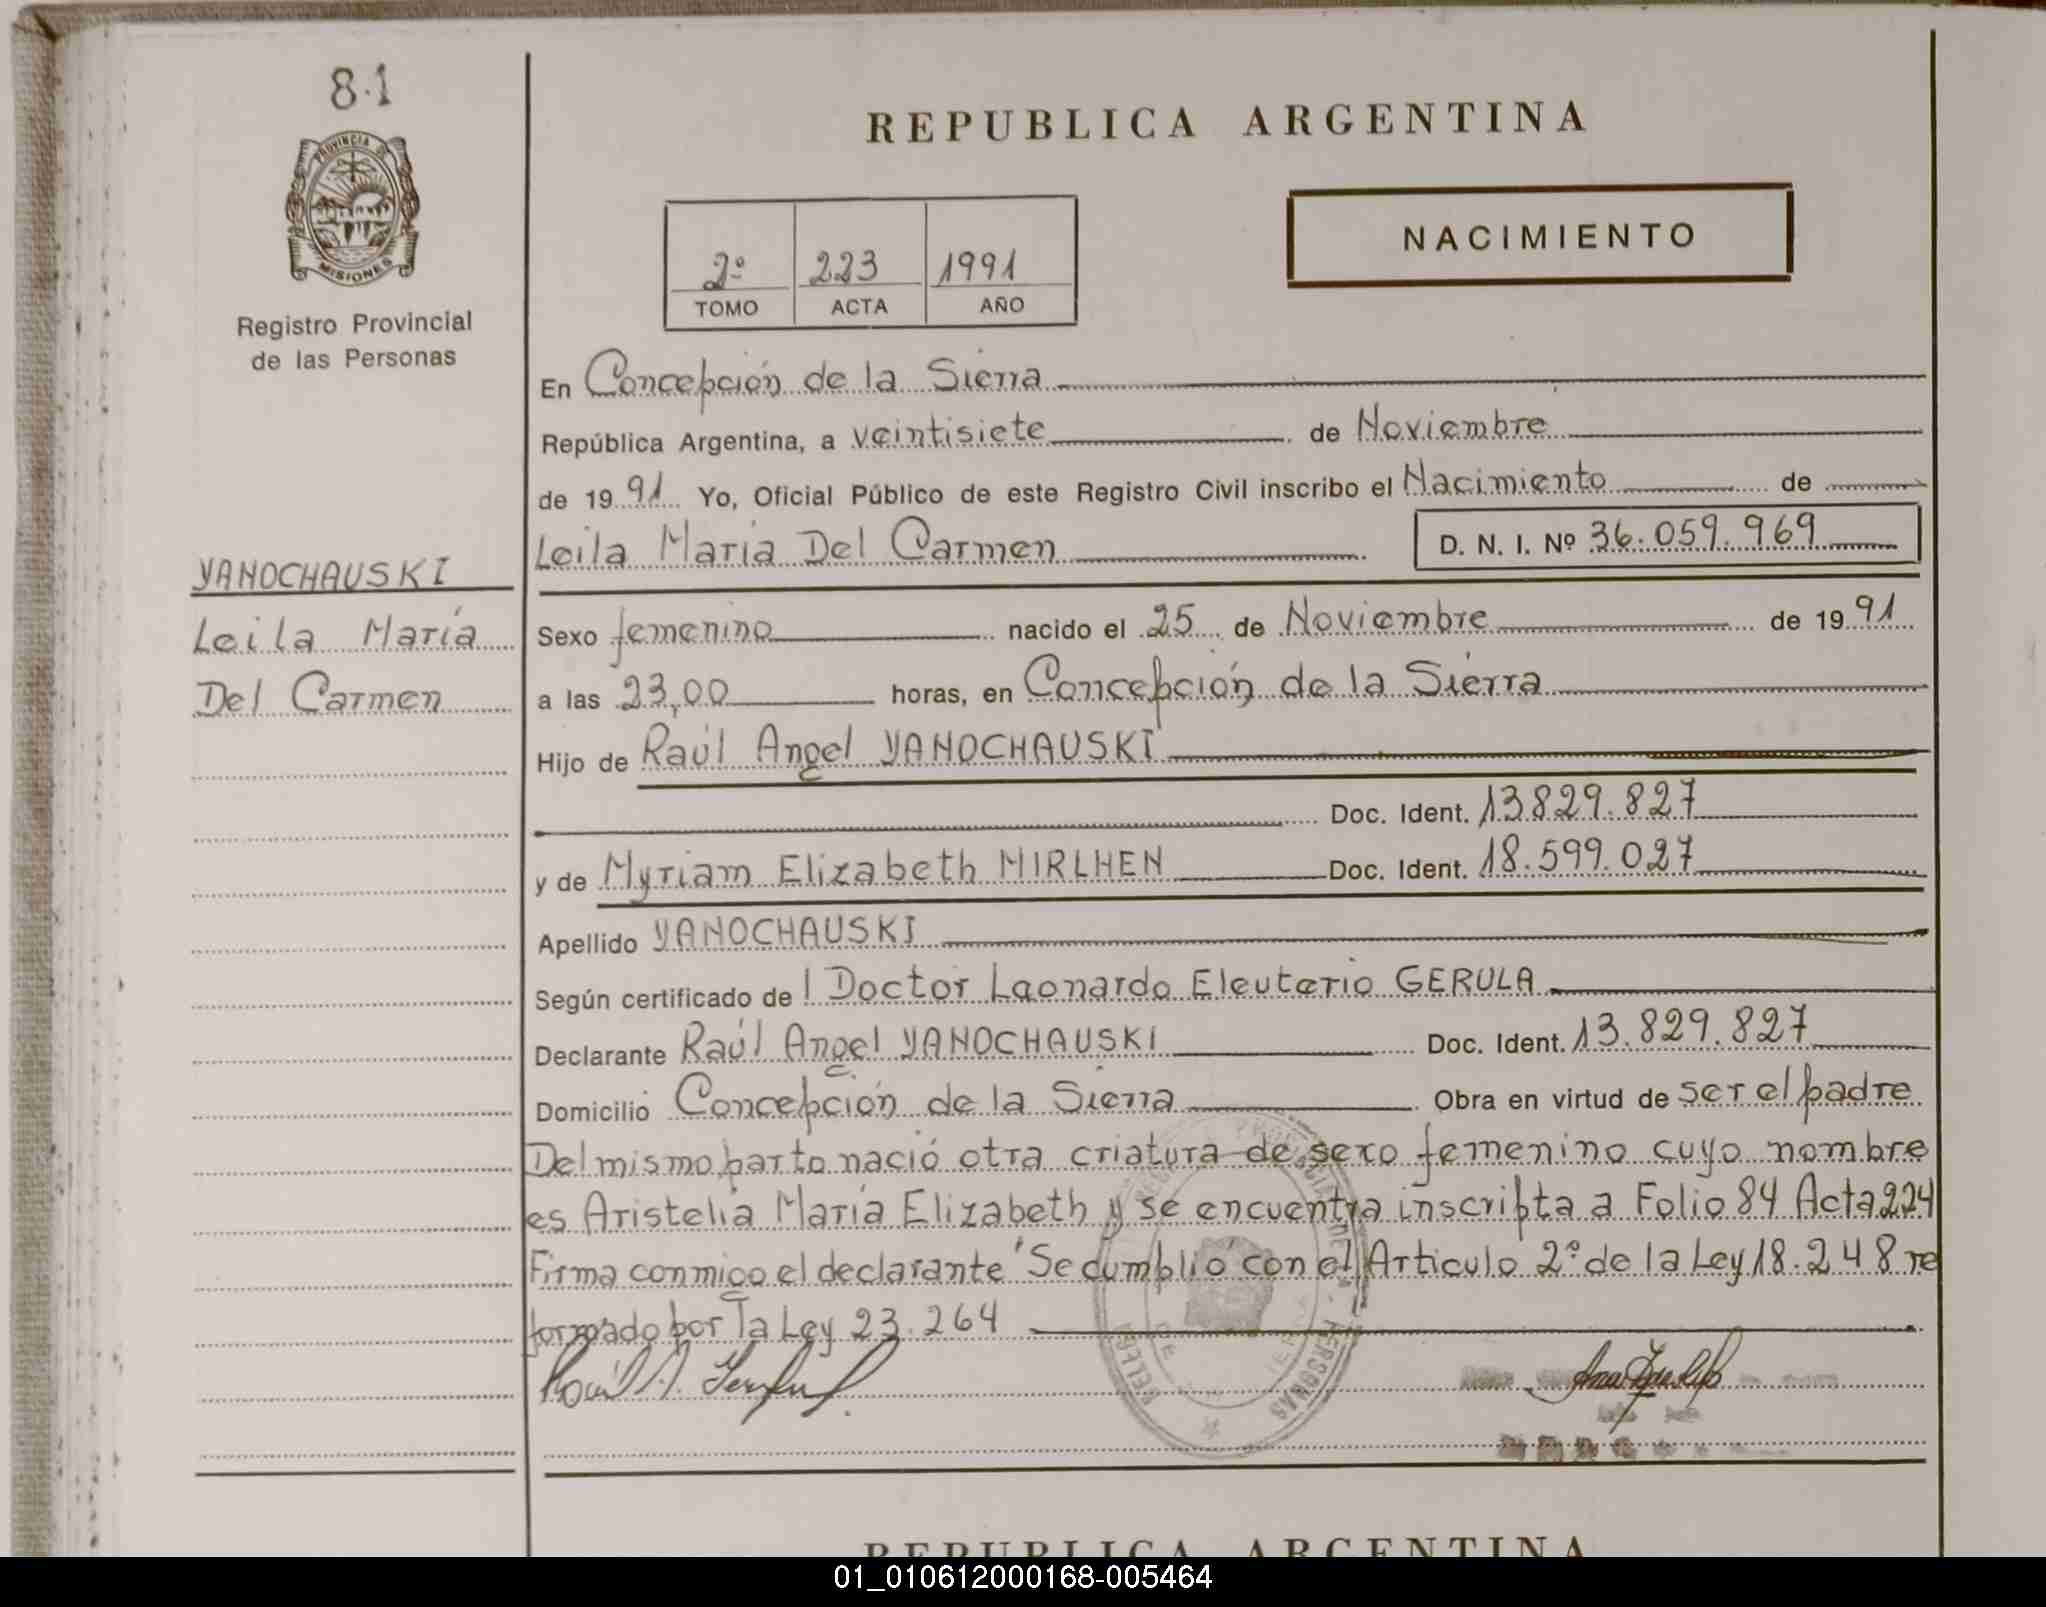 81
PROVINCIA DE
MISIONES
Registro Provincial
de las Personas
REPUBLICA ARGENTINA
2º 223 1991
TOMO ACTA AÑO
NACIMIENTO
En Concepción de la Sierra
República Argentina, a veintisiete de Noviembre
de 1991 Yo, Oficial Público de este Registro Civil inscribo el Nacimiento de
Leila María Del Carmen D. N. I. Nº 36.059.969
YANOCHAUSKI
Leila María
Del Carmen
Sexo femenino nacido el 25 de Noviembre de 1991
a las 23,00 horas, en Concepción de la Sierra
Hijo de Raúl Angel YANOCHAUSKI
Doc. Ident. 13829.827
y de Myriam Elizabeth MIRLHEN Doc. Ident. 18.599.027
Apellido YANOCHAUSKI
Según certificado del Doctor Laonardo Eleuterio GERULA
Declarante Raúl Angel YANOCHAUSKI Doc. Ident. 13.829.827
Domicilio Concepción de la Sierra Obra en virtud de ser el padre
Del mismo parto nació otra criatura de sexo femenino cuyo nombre
es Aristelia María Elizabeth y se encuentra inscripta a Folio 84 Acta 224
Firma conmigo el declarante Se cumplió con el Articulo 2º de la Ley 18.248 re
formado por la Ley 23.264
PERSONAS
REPUBLICA ARGENTINA
01_010612000168-005464